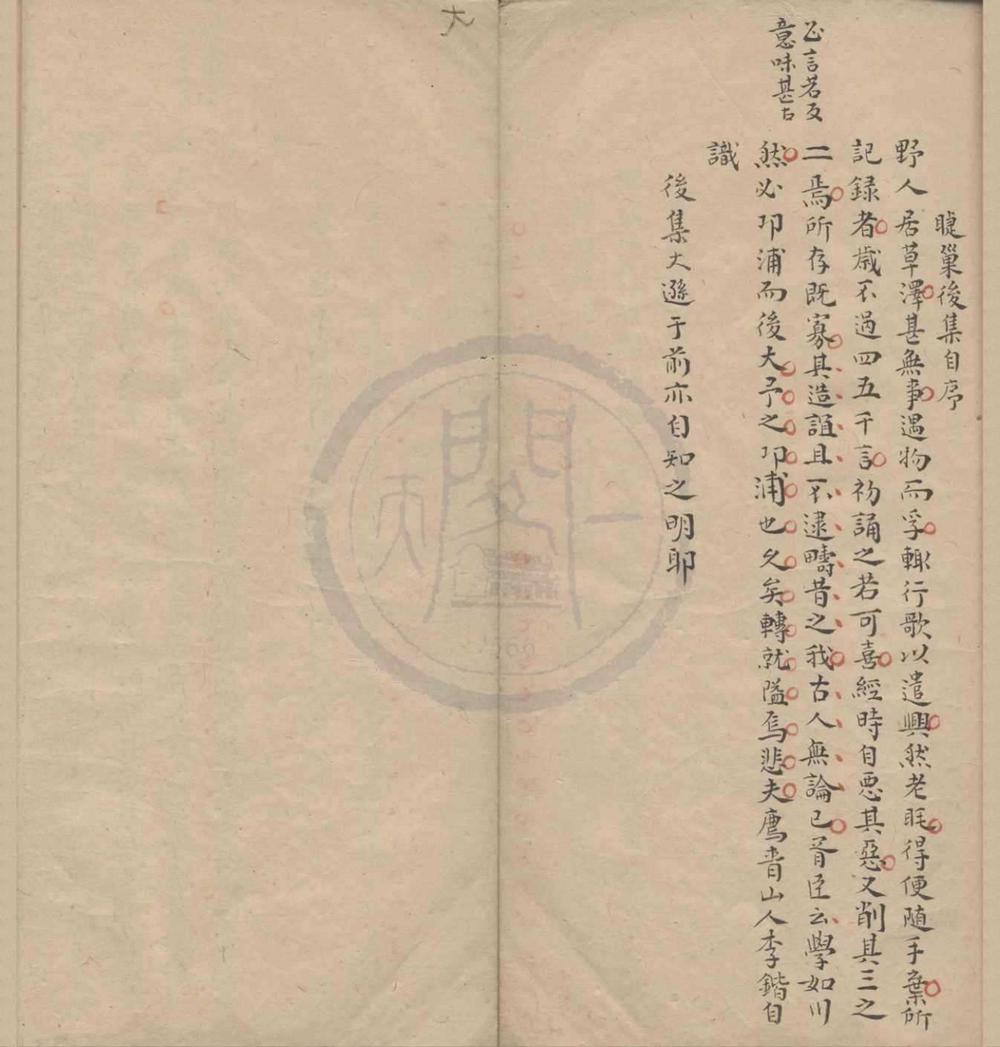 睫巢後集自序
野人居草澤甚無事遇物而孚輙行歌以遣興然老眊得便随手棄所
記録者歲不過四五千言初誦之若可喜經時自惡其惡又削其三之
二焉所存既寡其造詣且不逮疇昔之我古人無論已胥臣云學如川
然必卬浦而後大予之卬浦也久矣轉就隘焉悲夫鷹青山人李鍇自
識
後集大遜于前亦自知之明耶
正言若反
意味甚古